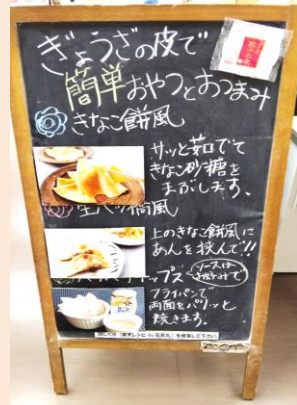 ぎょうざの皮で
簡単おやつとおつまみ
きなこ餅風
サッと茹でて
きなこ砂糖を
まぶします。
生八ッ橋風
上のきなこ餅風に
あんを挟んで!!
チップス
ソースは
お好みで
フライパンで
両面をパリッと
焼きます。